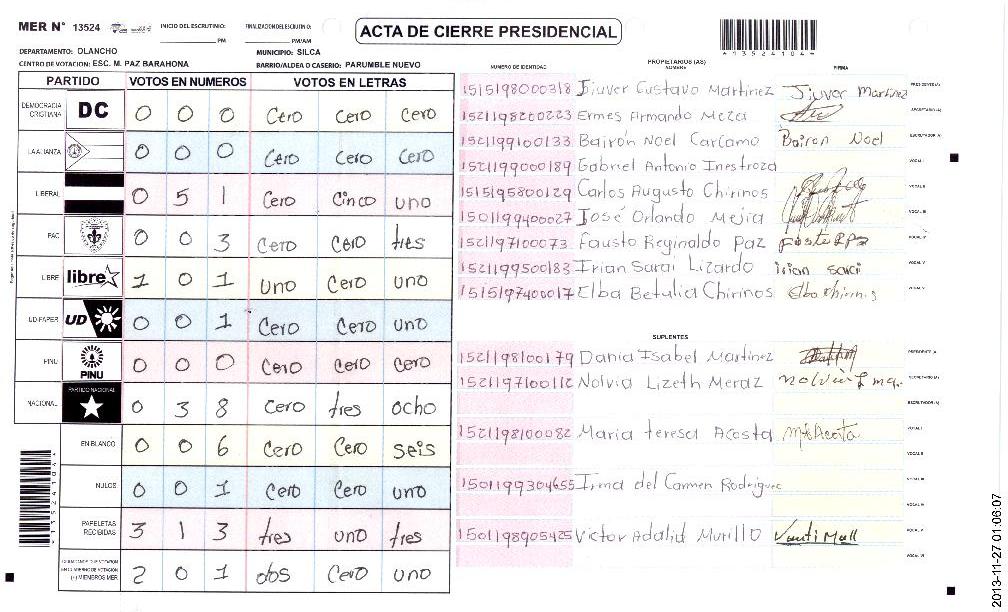 MER Nº 13524
INICIO DEL ESCRUTINIO: PM
FINALIZACION DEL ESCRUTINIO: PM/AM
ACTA DE CIERRE PRESIDENCIAL
4 1 3 5 2 4 1 0 4 4
DEPARTAMENTO: OLANCHO
MUNICIPIO: SILCA
CENTRO DE VOTACION: ESC. M. PAZ BARAHONA
BARRIO/ALDEA O CASERIO: PARUMBLE NUEVO
PARTIDO VOTOS EN NUMEROS VOTOS EN LETRAS
DEMOCRACIA CRISTIANA DC 0 0 0 Cero Cero Cero
LA ALIANZA 0 0 0 Cero Cero Cero
LIBERAL 0 5 1 Cero Cinco uno
PAC 0 0 3 Cero Cero tres
LIBRE libre 1 0 1 uno Cero uno
UD-FAPER UD 0 0 1 Cero Cero uno
PINU PINU 0 0 0 Cero Cero Cero
NACIONAL PARTIDO NACIONAL 0 3 8 Cero tres ocho
EN BLANCO 0 0 6 Cero Cero seis
NULOS 0 0 1 Cero Cero uno
PAPELETAS RECIBIDAS 3 1 3 tres uno tres
CIUDADANOS QUE VOTARON EN CUADERNO DE VOTACION (+) MIEMBROS MER 2 0 1 dos Cero uno
PROPIETARIOS (AS)
NUMERO DE IDENTIDAD NOMBRE FIRMA
1515198000318 Jiuver Gustavo Martinez Jiuver Martinez PRESIDENTE (A)
1521198200223 Ermes Armando Meza SECRETARIO (A)
1521199100133 Bairón Noel Carcamo Bairon Noel ESCRUTADOR (A)
1521199000189 Gabriel Antonio Inestroza VOCAL I
1515195800129 Carlos Augusto Chirinos VOCAL II
1501199400027 José Orlando Mejia VOCAL III
1521197100073 Fausto Reginaldo Paz VOCAL IV
1521199500183 Irian Sarai Lizardo irian sarai VOCAL V
1515197400017 Elba Betulia Chirinos Elba chirinos VOCAL VI
SUPLENTES
1521198100179 Dania Isabel Martinez PRESIDENTE (A)
1521197100112 Nolvia Lizeth Meraz SECRETARIO (A)
ESCRUTADOR (A)
1521198100082 Maria teresa Acosta VOCAL I
VOCAL II
1501199304655 Irma del Carmen Rodriguez VOCAL III
VOCAL IV
1501198905425 Victor Adalid Murillo VOCAL V
VOCAL VI
2013-11-27 01:06:07